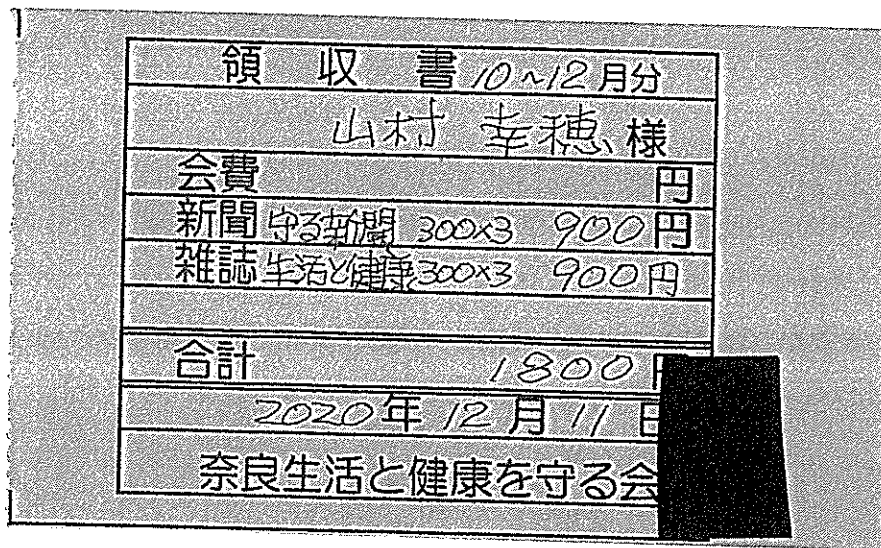 領 収 書 10~12月分
山村 幸穂 様
会費 円
新聞 守る新聞 300×3 900円
雑誌 生活と健康 300×3 900円
合計 1800円
2020年12月11日
奈良生活と健康を守る会